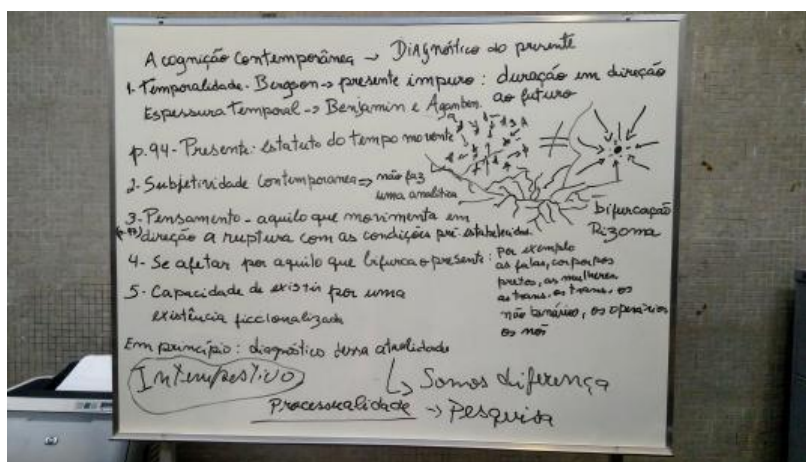 A cognição Contemporânea → Diagnóstico do presente
1- Temporalidade - Bergson → presente impuro: duração em direção
ao futuro
Espessura Temporal → Benjamin e Agamben.
p.94 - Presente: estatuto do tempo movente
2- Subjetividade Contemporanea ⇒ não faz
uma analítica
3- Pensamento - aquilo que movimenta em
direção a ruptura com as condições pré-estabelecidas.
Bifurcação
Rizoma
4- Se afetar por aquilo que bifurca o presente: Por exemplo
as falas, corpo
pretos, as mulheres
as trans, os trans, os
não binário, os operários
os nós
5- Capacidade de existir por uma
existência ficcionalizada
Em princípio: diagnóstico dessa atualidade
↳ Somos diferença
Intempestivo
Processualidade → Pesquisa